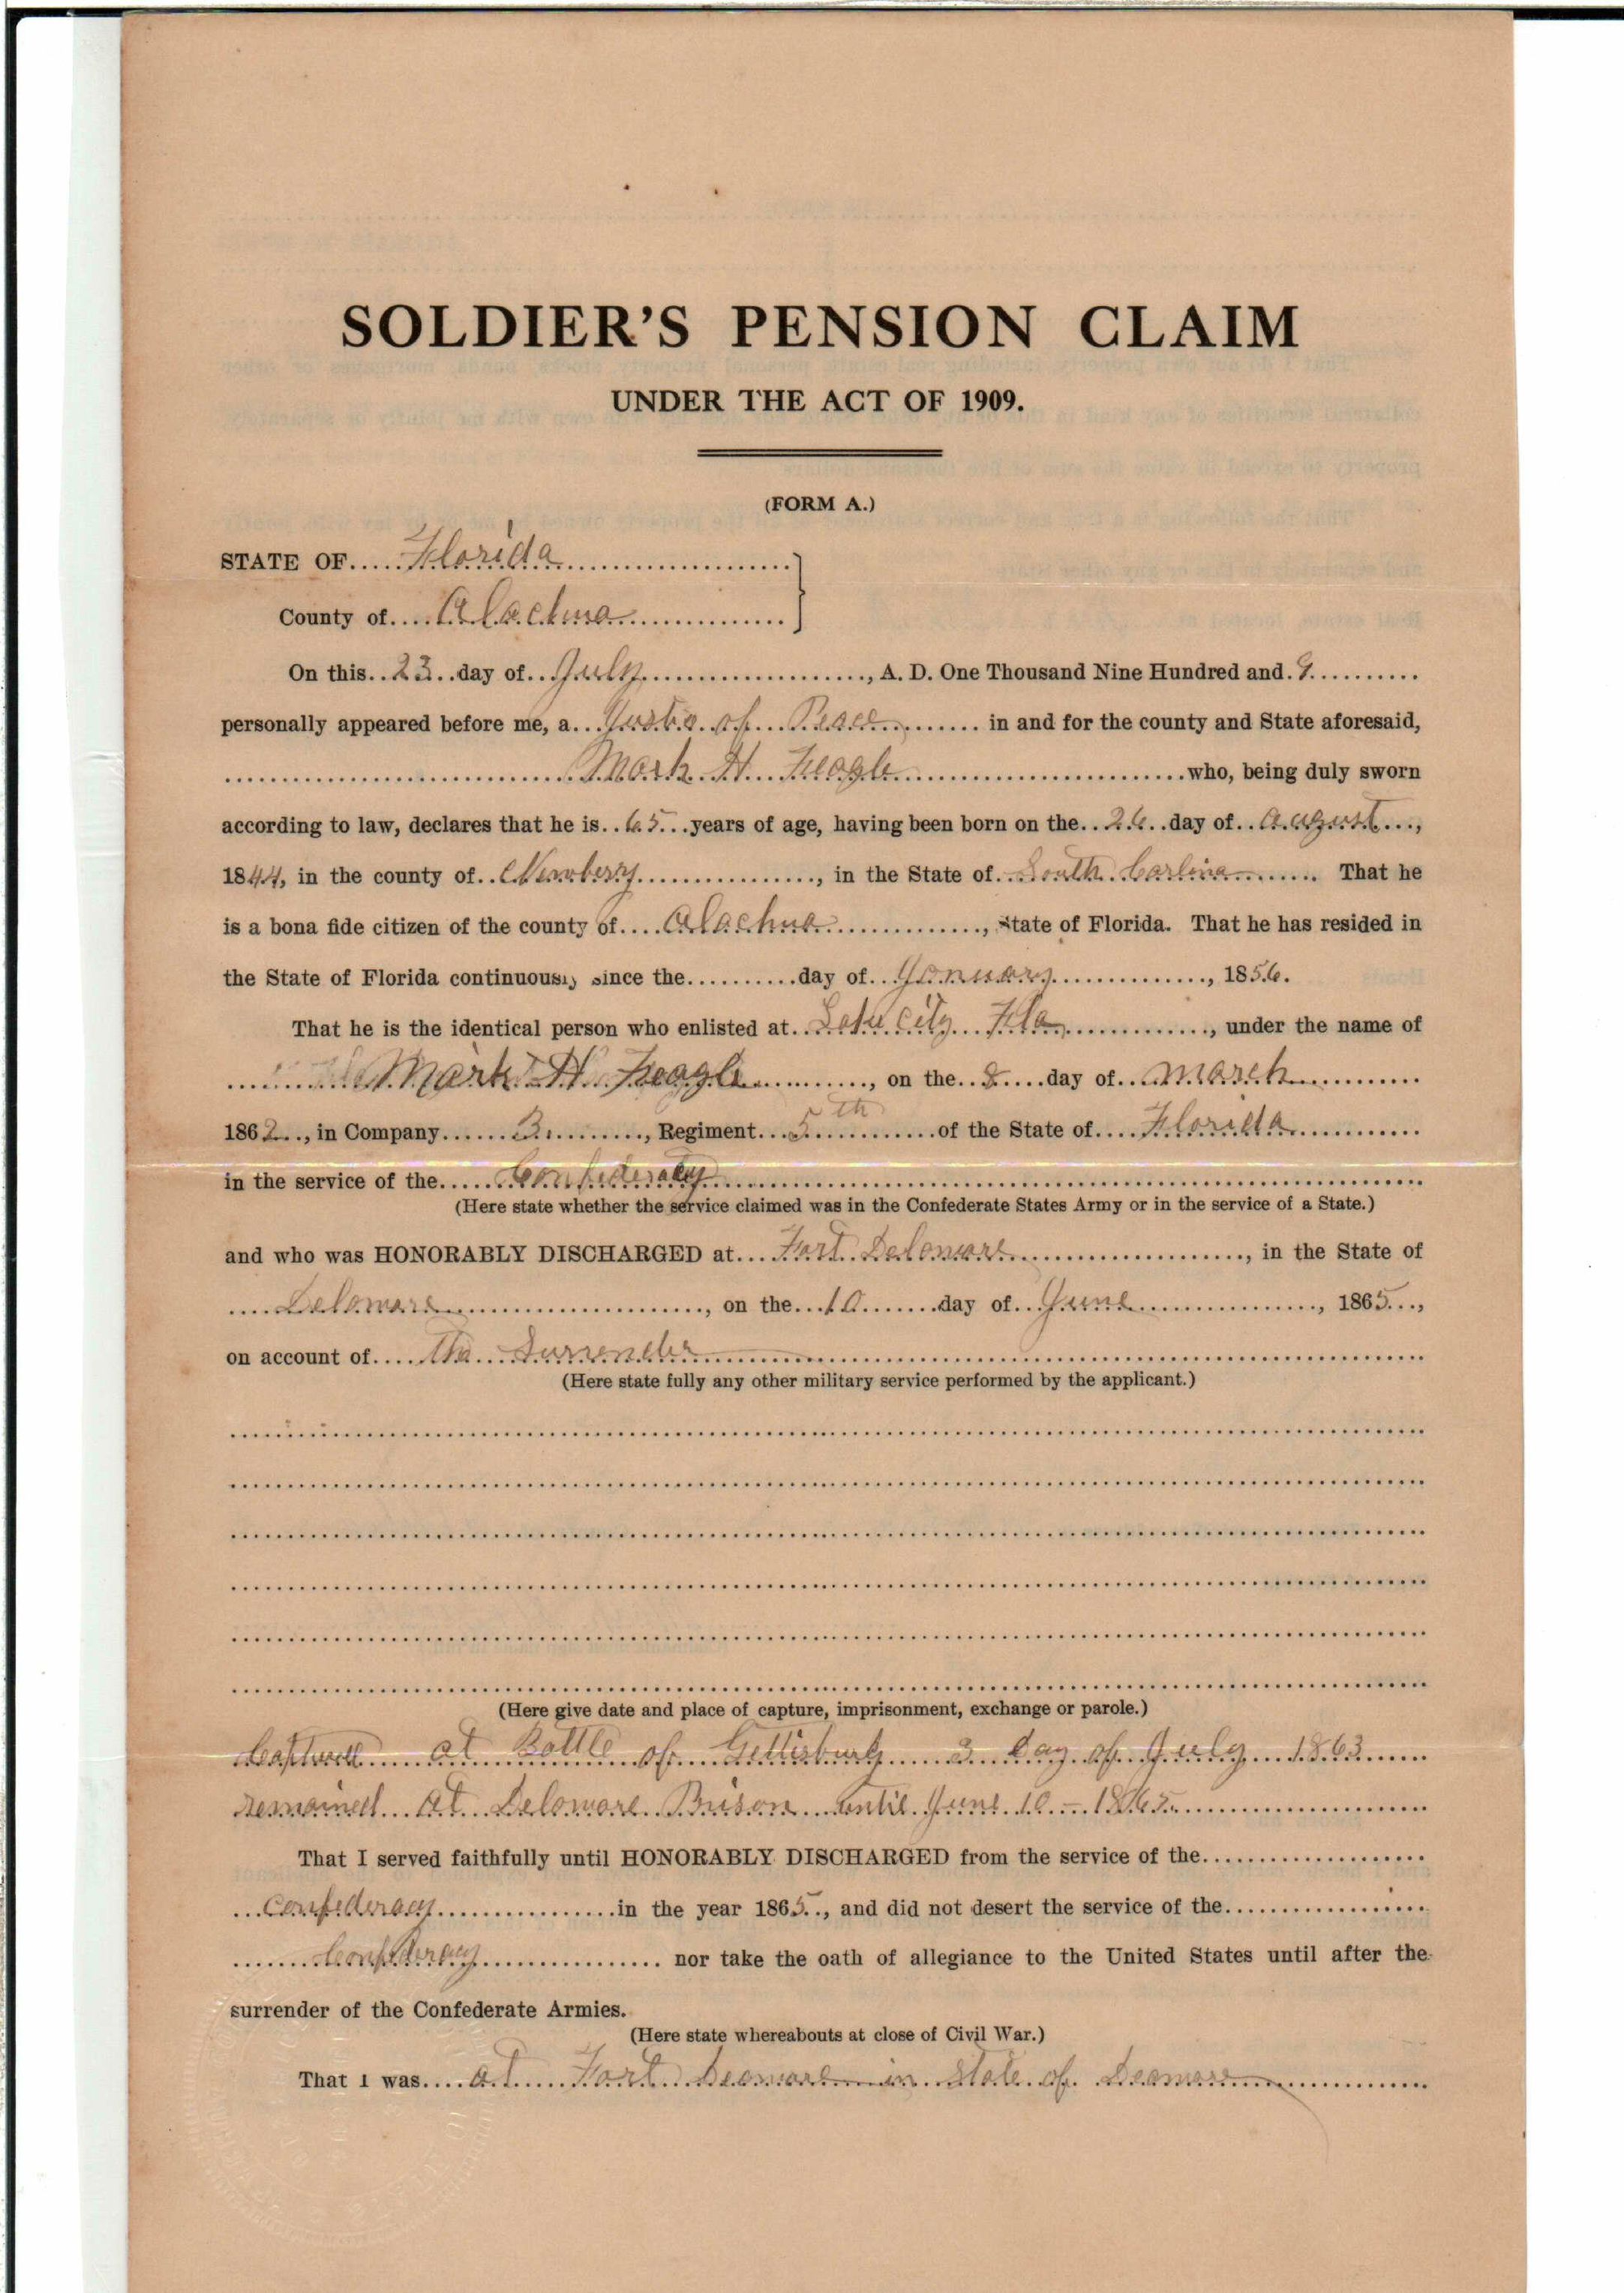 SOLDIER'S PENSION CLAIM
UNDER THE ACT OF 1909.
(FORM A.)
STATE OF Florida
County of Alachua
On this 23 day of July, A. D. One Thousand Nine Hundred and 9
personally appeared before me, a of Peace in and for the county and State aforesaid,
Mark H. Feagle who, being duly sworn
according to law, declares that he is 65 years of age, having been born on the 26 day of August,
1844, in the county of Newberry, in the State of South Carlina That he
is a bona fide citizen of the county of Alachua, State of Florida. That he has resided in
the State of Florida continuously since the day of January, 1856.
That he is the identical person who enlisted at Lake City Fla, under the name of
Mark H. Feagle, on the 8 day of March
1862, in Company B, Regiment 5th of the State of Florida
in the service of the Confederacy
(Here state whether the service claimed was in the Confederate States Army or in the service of a State.)
and who was HONORABLY DISCHARGED at Fort Deloware, in the State of
Deloware, on the 10 day of June, 1865,
on account of The Surrender
(Here state fully any other military service performed by the applicant.)
(Here give date and place of capture, imprisonment, exchange or parole.)
Captured at Battle of Gettisburg 3 day of July 1863
remained at Deloware Prison until June 10 - 1865
That I served faithfully until HONORABLY DISCHARGED from the service of the
Confederacy in the year 1865, and did not desert the service of the
Confederacy nor take the oath of allegiance to the United States until after the
surrender of the Confederate Armies.
(Here state whereabouts at close of Civil War.)
That I was at Fort Deoware in State of Deoware